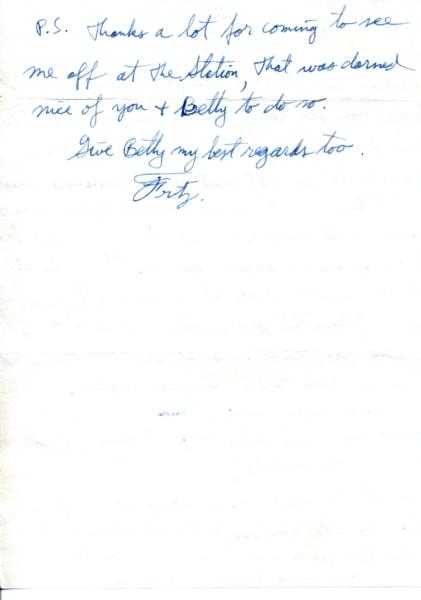 P.S. Thanks a lot for coming to see
me off at the Station, that was darned
nice of you + Betty to do so.
Give Betty my best regards too.
Fritz.